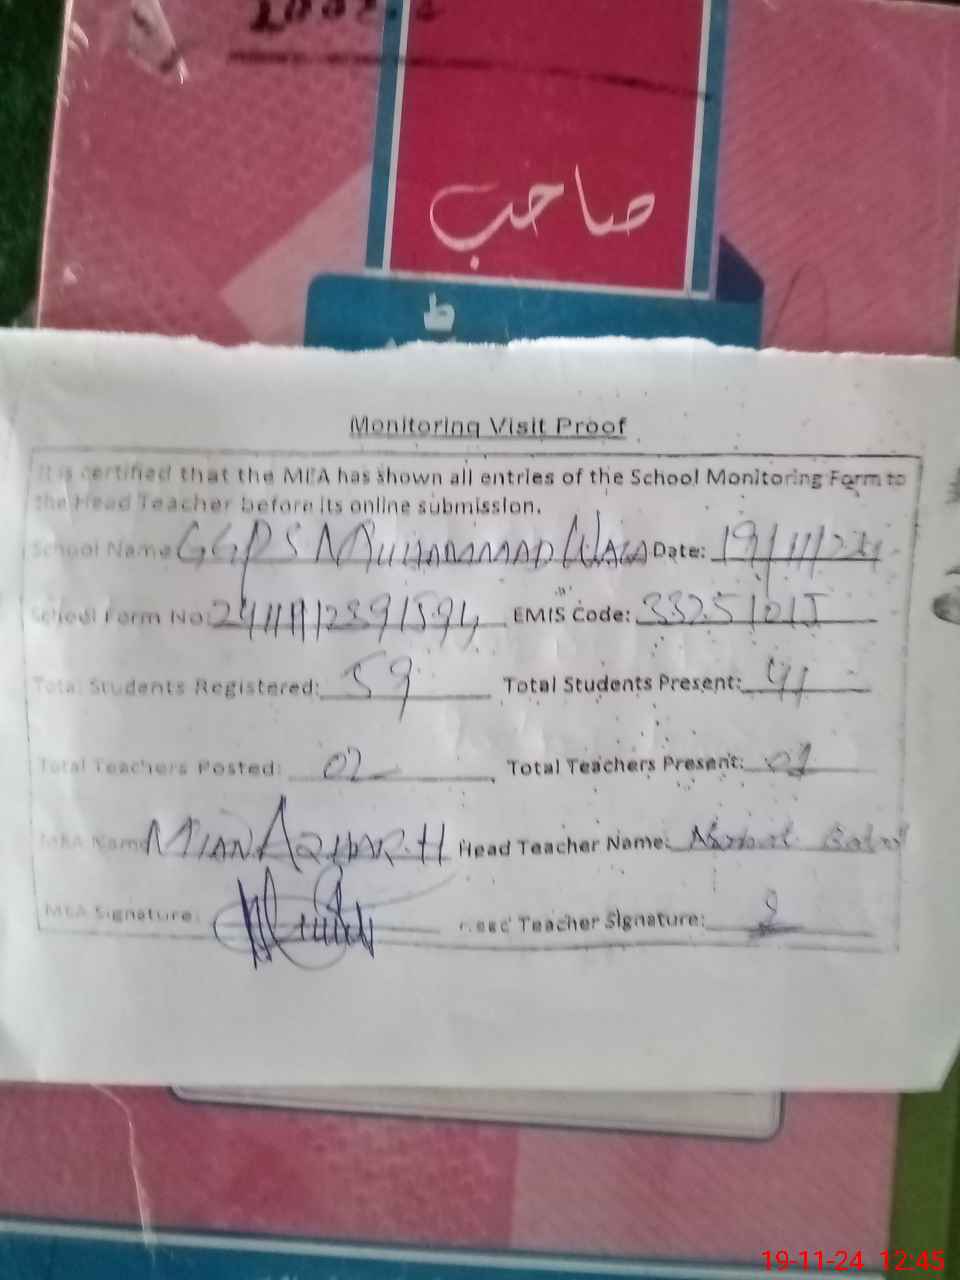 صاحب
ط
Monitoring Visit Proof
It is certified that the MEA has shown all entries of the School Monitoring Form to
the Head Teacher before its online submission.
School Name: GGPS MUHAMMAD WALA Date: 19/11/24
School Form No: EMIS Code: 33251015
Total Students Registered: 59 Total Students Present: 41
Total Teachers Posted: 02 Total Teachers Present: 01
MEA Name: MIAN AZHAR.H Head Teacher Name:
MEA Signature: Head Teacher Signature:
19-11-24 12:45